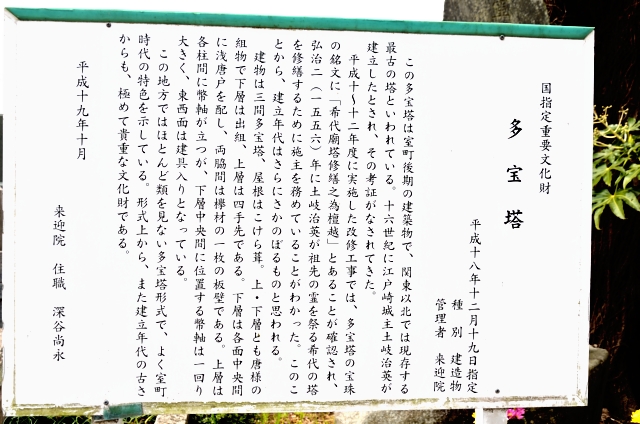 国指定重要文化財
多宝塔
平成十八年十二月十九日指定
種別 建造物
管理者 来迎院
この多宝塔は室町後期の建築物で、関東以北では現存する
最古の塔といわれている。十六世紀に江戸崎城主土岐治英が
建立したとされ、その考証がなされてきた。
平成十～十二年度に実施した改修工事では、多宝塔の宝珠
の銘文に「希代廟塔修繕之為檀越」とあることが確認され、
弘治二(一五五六)年に土岐治英が祖先の霊を祭る希代の塔
を修繕するために施主を務めていることがわかった。このこ
とから、建立年代はさらにさかのぼるものと思われる。
建物は三間多宝塔、屋根はこけら葺。上・下層とも唐様の
組物で下層は出組、上層は四手先である。下層は各面中央間
に浅唐戸を配し、両脇間は欅材の一枚の板壁である。上層は
各柱間に幣軸が立つが、下層中央間に位置する幣軸は一回り
大きく、東西面は建具入りとなっている。
この地方ではほとんど類を見ない多宝塔形式で、よく室町
時代の特色を示している。形式上から、また建立年代の古さ
からも、極めて貴重な文化財である。
平成十九年十月
来迎院 住職 深谷尚永